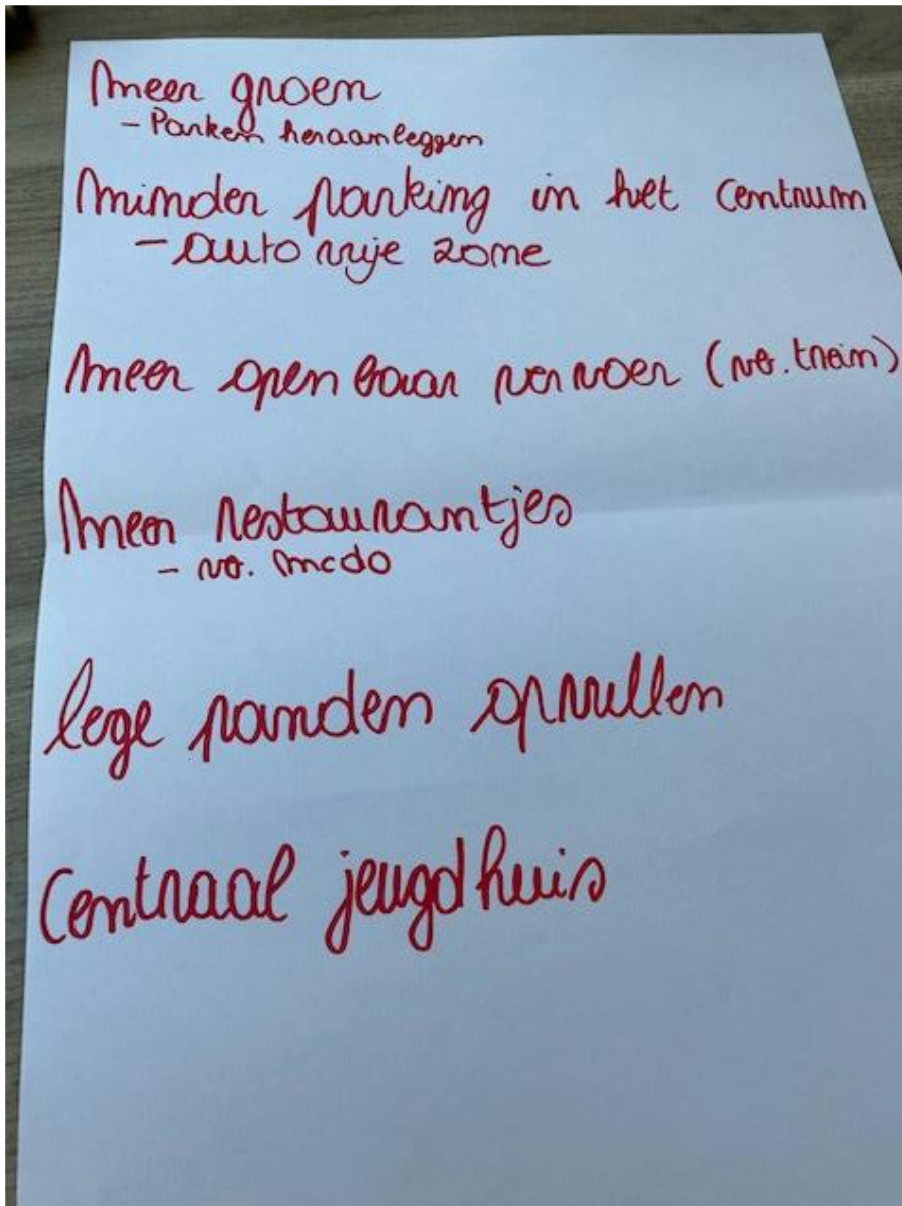 meer groen
- Parken heraanleggen
minder parking in het centrum
- auto vrije zone
meer openbaar vervoer (vb. trein)
meer restaurantjes
- vb. mcdo
lege panden opvullen
Centraal jeugdhuis